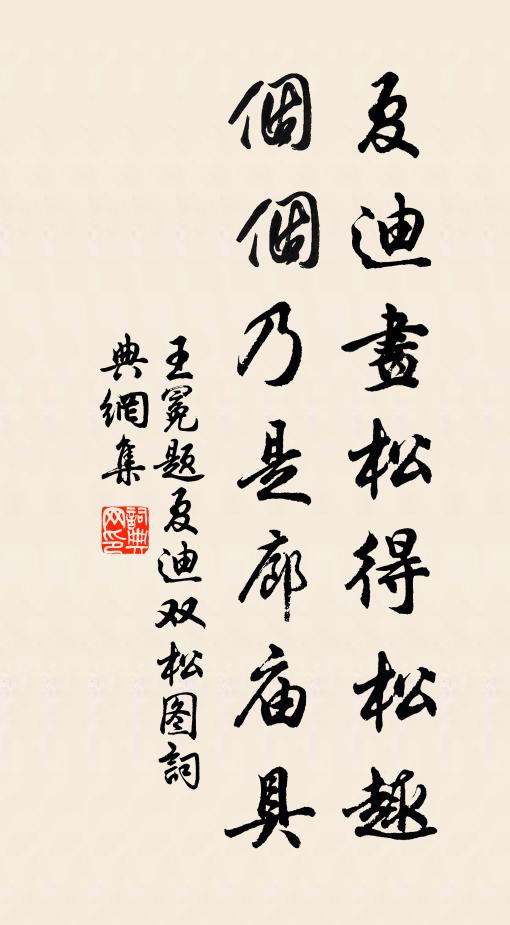 夏迪畫松得松趣
個個乃是廊庙具
王冕题夏迪双松图詞
典網集
詞典網印